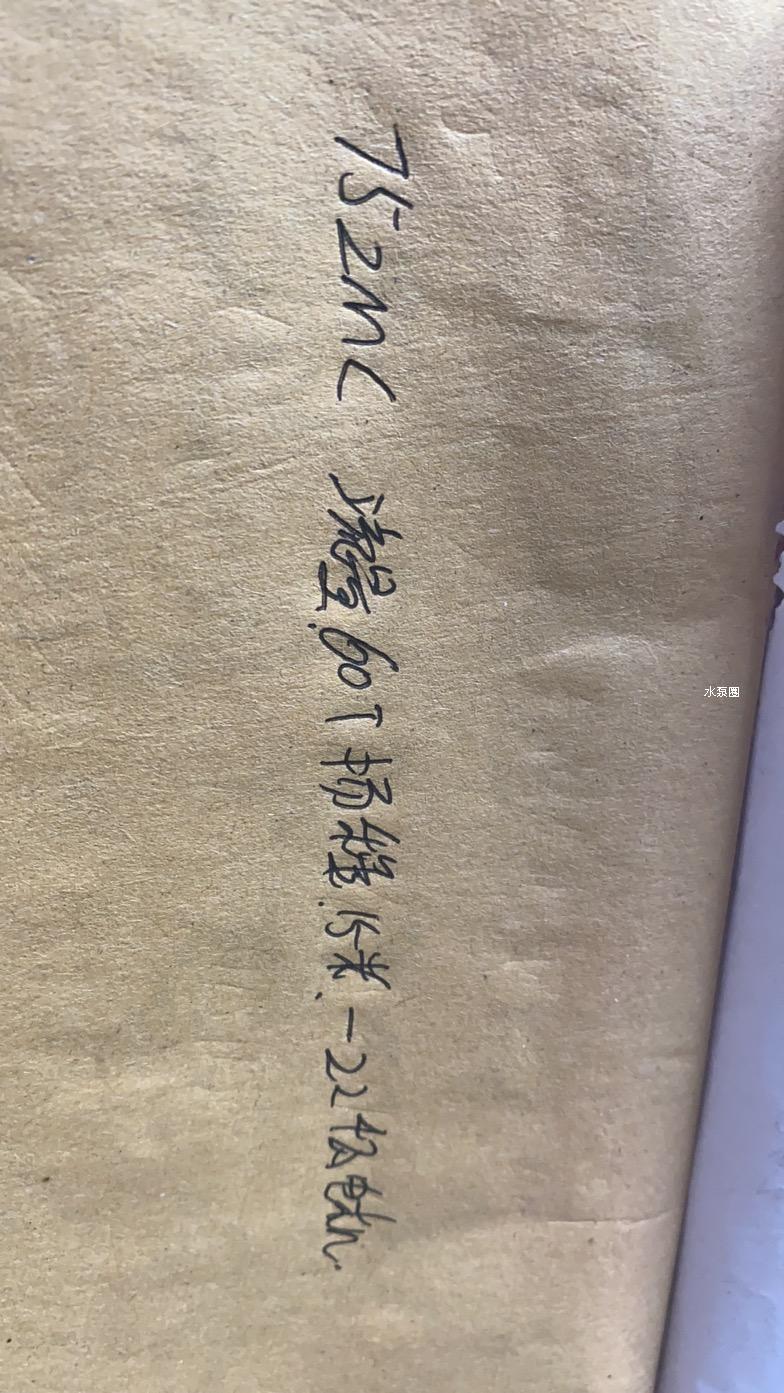 75ZML 流量60T 扬程15米 -22 4极电机
水泵圈